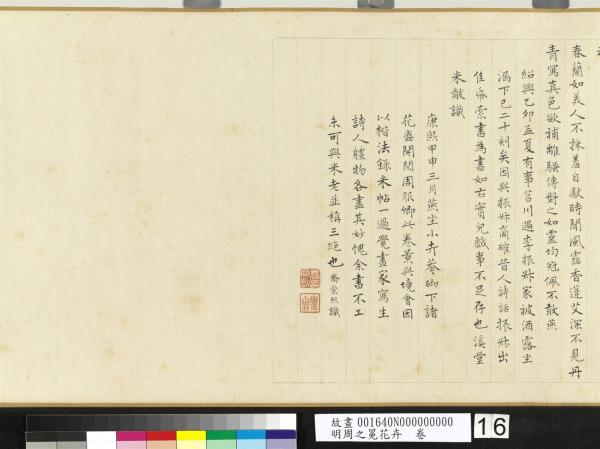 春蘭如美人不採羞自獻時聞風露香蓬艾深不見丹
青寫真色欲補離騷傳對之如靈均冠佩不敢燕
紹興乙卯孟夏有事苕川過李振叔家被酒露坐
漏下已二十刻矣因與振叔商確昔人詩話振叔出
佳帋索書為書如右實兒戲事不足存也溪堂
米敵識
康熙甲申三月燕坐小卉菴砌下諸
花盛開閱周服卿此卷景與境會因
以楷法錄米帖一過覺畫家寫生
詩人體物各盡其妙愧余書不工
未可與米老並稱三絕也
識
故畫 001640N000000000
明周之冕花卉 卷
16